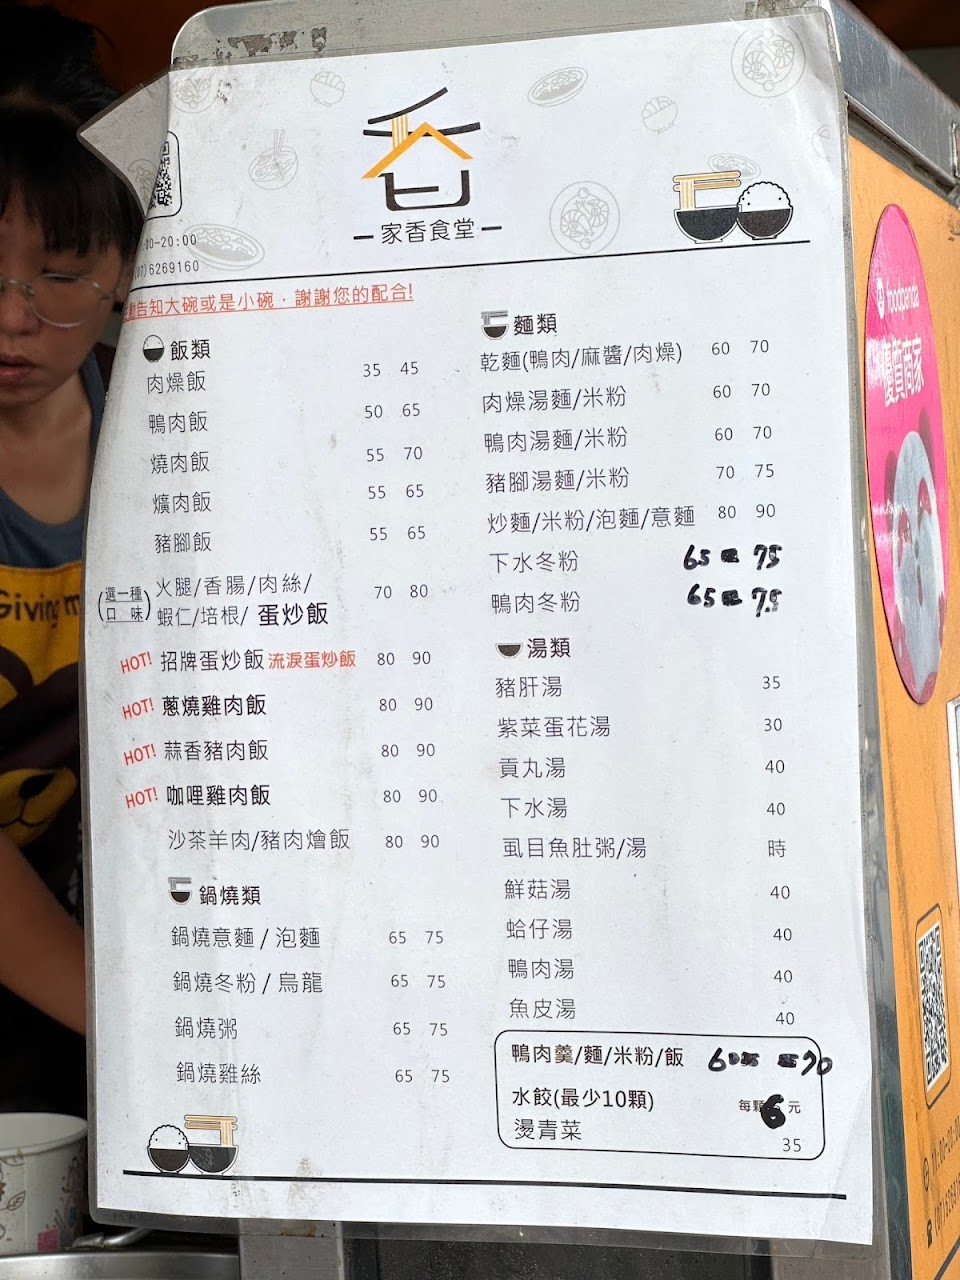 家香食堂
:00~20:00
(07)6269160
告知大碗或是小碗，謝謝您的配合!
飯類
肉燥飯 35 45
鴨肉飯 50 65
燒肉飯 55 70
爌肉飯 55 65
豬腳飯 55 65
(選一種口味) 火腿/香腸/肉絲/
蝦仁/培根/ 蛋炒飯 70 80
HOT! 招牌蛋炒飯 流淚蛋炒飯 80 90
HOT! 蔥燒雞肉飯 80 90
HOT! 蒜香豬肉飯 80 90
HOT! 咖哩雞肉飯 80 90
沙茶羊肉/豬肉燴飯 80 90
鍋燒類
鍋燒意麵/泡麵 65 75
鍋燒冬粉/烏龍 65 75
鍋燒粥 65 75
鍋燒雞絲 65 75
麵類
乾麵(鴨肉/麻醬/肉燥) 60 70
肉燥湯麵/米粉 60 70
鴨肉湯麵/米粉 60 70
豬腳湯麵/米粉 70 75
炒麵/米粉/泡麵/意麵 80 90
下水冬粉 65 75
鴨肉冬粉 65 75
湯類
豬肝湯 35
紫菜蛋花湯 30
貢丸湯 40
下水湯 40
虱目魚肚粥/湯 時
鮮菇湯 40
蛤仔湯 40
鴨肉湯 40
魚皮湯 40
鴨肉羹/麵/米粉/飯 60 70
水餃(最少10顆) 每顆6元
燙青菜 35
foodpanda
優質商家
Giving m